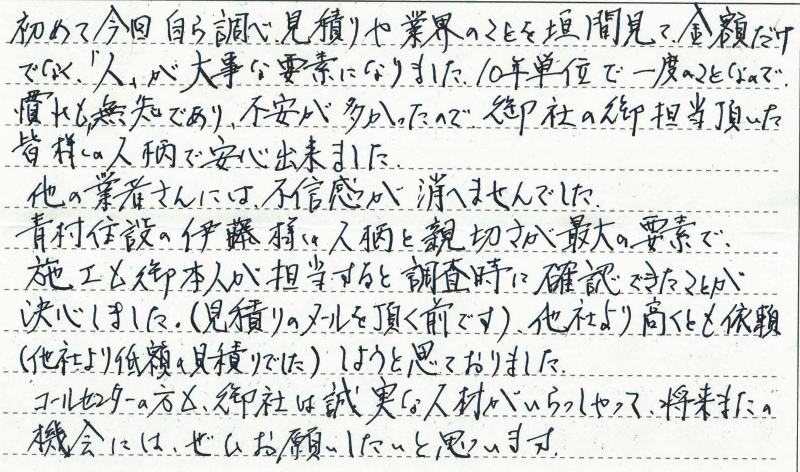 初めて今回自ら調べ見積りや業界のことを垣間見て金額だけ
でなく、「人」が大事な要素になりました。10年単位で一度のことなので、
慣れも無知であり、不安が多かったので、御社の御担当頂いた
皆様の人柄で安心出来ました。
他の業者さんには、不信感が消へませんでした。
青村住設の伊藤様の人柄と親切さが最大の要素で、
施工も御本人が担当すると調査時に確認できたことが
決心しました。(見積りのメールを頂く前です)、他社より高くとも依頼
(他社より低額の見積りでした)しようと思っておりました。
コールセンターの方も、御社は誠実な人材がいらっしゃって、将来またの
機会には、ぜひお願いしたいと思います。